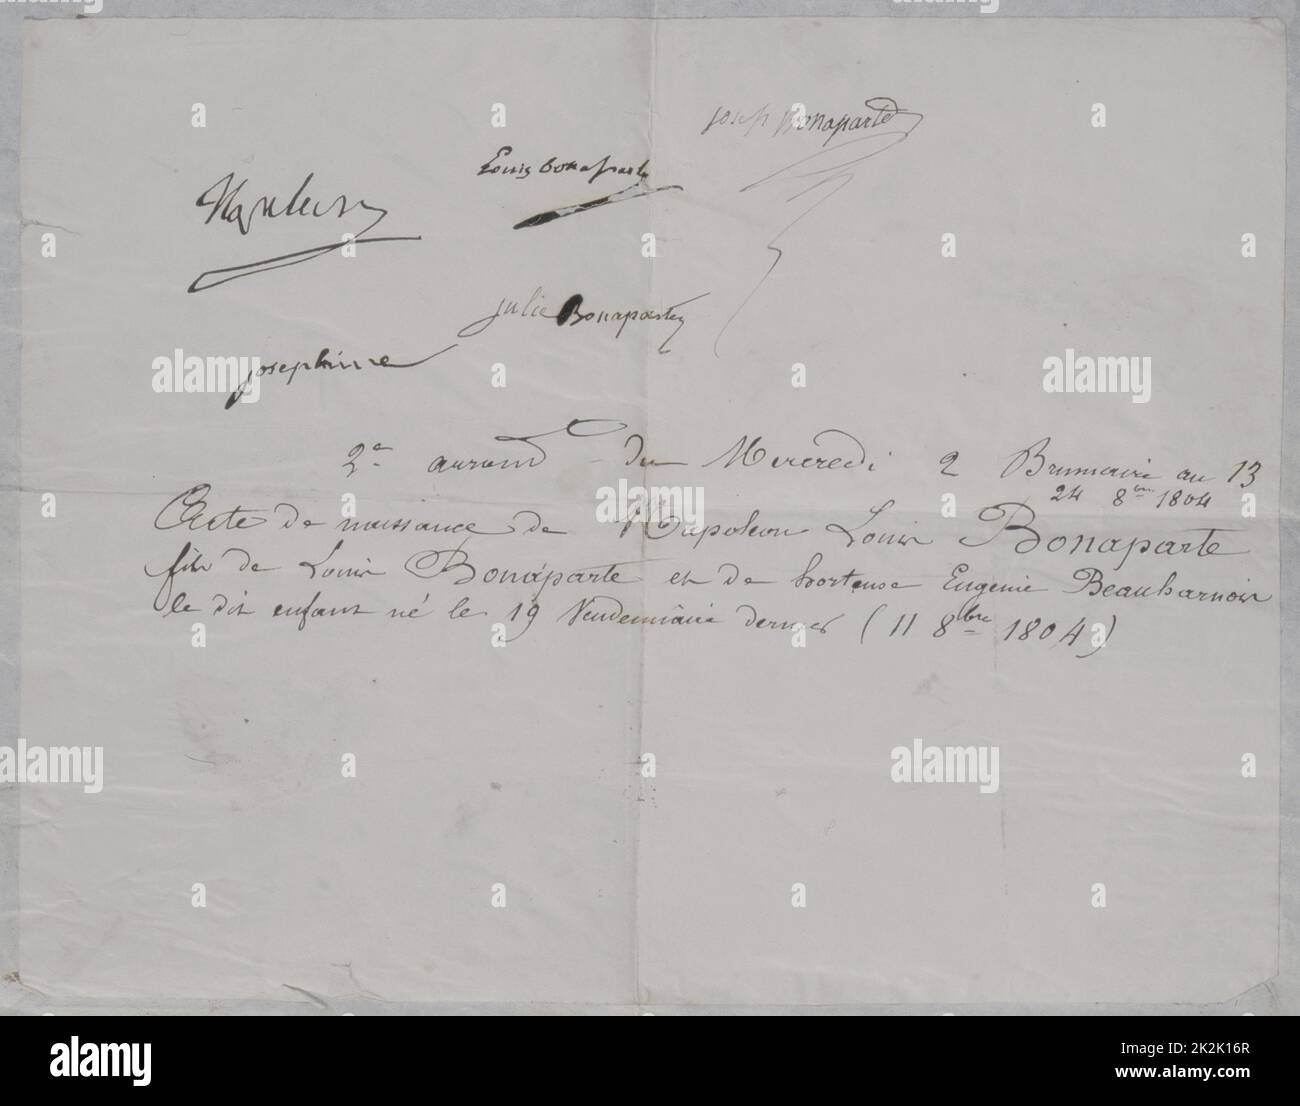 Joseph Bonaparte
Louis bonaparte
Napoleon
Julie Bonaparte
Josephine
2e arrond.t du Mercredi 2 Brumaire an 13
24 8bre 1804
Acte de naissance de Napoleon Louis Bonaparte
fils de Louis Bonaparte et de hortense Eugenie Beauharnois
le dit enfant né le 19 Vendemiaire dernier (11 8bre 1804)
alamy
Image ID: 2K2K16R
www.alamy.com